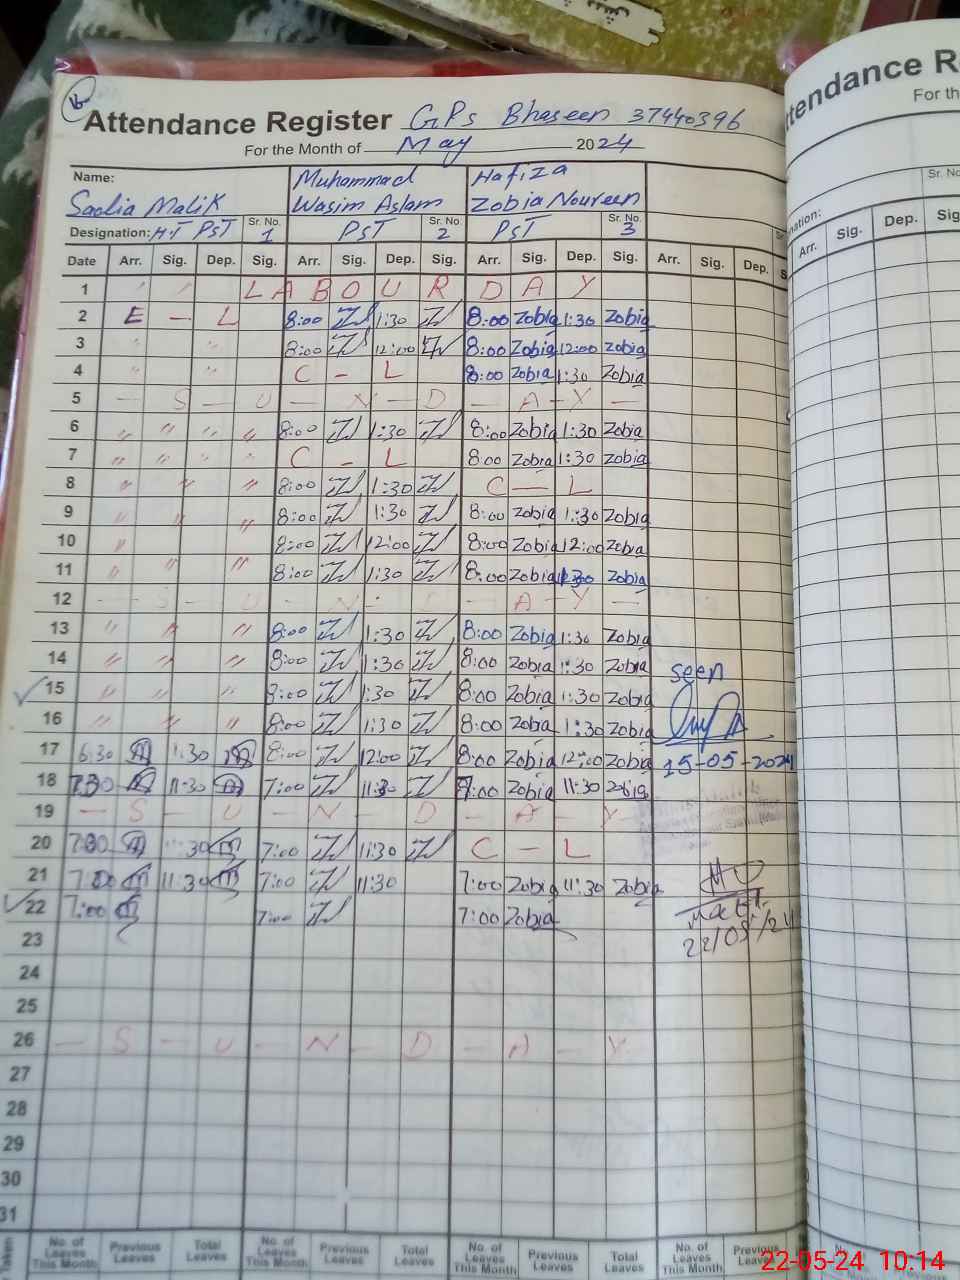 Attendance Register GPS Bhaseen 37440396
For the Month of May 2024
Name: Sadia Malik Muhammad Wasim Aslam Hafiza Zobia Noureen
Designation: H.T PST Sr. No. 1 PST Sr. No. 2 PST Sr. No. 3
Date Arr. Sig. Dep. Sig. Arr. Sig. Dep. Sig. Arr. Sig. Dep. Sig. Arr. Sig. Dep.
1 L A B O U R D A Y
2 E - L 8:00 1:30 8:00 Zobia 1:30 Zobia
3 " " 8:00 12:00 8:00 Zobia 12:00 Zobia
4 " " C - L 8:00 Zobia 1:30 Zobia
5 - S - U - N - D - A - Y -
6 " " " " 8:00 1:30 8:00 Zobia 1:30 Zobia
7 " " " " C - L 8:00 Zobia 1:30 Zobia
8 " " " 8:00 1:30 C - L
9 " " " 8:00 1:30 8:00 Zobia 1:30 Zobia
10 " 8:00 12:00 8:00 Zobia 12:00 Zobia
11 " " " 8:00 1:30 8:00 Zobia 1:30 Zobia
12 - S - U - N - D - A - Y -
13 " " " 8:00 1:30 8:00 Zobia 1:30 Zobia
14 " " " 8:00 1:30 8:00 Zobia 1:30 Zobia
seen
15 " " " 8:00 1:30 8:00 Zobia 1:30 Zobia
16 " " " 8:00 1:30 8:00 Zobia 1:30 Zobia
17 6:30 1:30 8:00 12:00 8:00 Zobia 12:00 Zobia
15-05-2024
18 7:30 11:30 7:00 11:30 7:00 Zobia 11:30 Zobia
19 - S - U - N - D - A - Y
20 11:30 7:00 11:30 C - L
21 11:30 7:00 11:30 7:00 Zobia 11:30 Zobia
22 7:00 7:00 7:00 Zobia
22/05/24
23
24
25
26 - S - U - N - D - A - Y
27
28
29
30
31
Taken No. of Leaves This Month Previous Leaves Total Leaves No. of Leaves This Month Previous Leaves Total Leaves No. of Leaves This Month Previous Leaves Total Leaves No. of Leaves This Month Previous Leaves
tendance R
For th
Sr. No
nation:
Arr. Sig. Dep. Sig
22-05-24 10:14